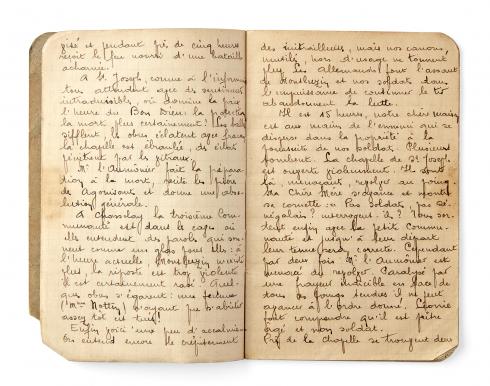 gisé et pendant près de cinq heures
reçoit le feu nourri d'une bataille
acharnée.
A St Joseph, comme à l'infirmerie
tous attendent avec des sentiments
intraduisibles, où domine la foi
l'heure du Bon Dieu: la protection
la mort, plus certainement! Les balles
sifflent, les obus éclatent avec fracas
la chapelle est ébranlée, des éclats
pénètrent par les vitraux.
Mr l'Aumônier fait la prépara-
tion à la mort, récite les prières
des Agonisants et donne une abso-
lution générale.
A Chasselay la troisième Com-
munauté est dans le caves où
elle entendent des paroles qui son-
nent comme un glas pour elle: à
l'heure actuelle Montluzin n'existe
plus, la riposte est trop violente
il est certainement rasé. Quel-
ques obus s'égarent: une personne
(Mme Nottin) n'ayant pu s'abriter
assez tôt est tuée!
Enfin voici une peu d'accalmie
On entend encore le crépitement
des mitrailleuses, mais nos canons,
mutilés, hors d'usage ne tonnent
plus. Les Allemands font l'assaut
de Montluzin et nos soldats dans
l'impuissance de continuer le tir
abandonnent la lutte.
Il est 15 heures, notre cher
est aux mains de l'ennemi qui se
disperse dans la propriété à la
poursuite de nos soldats. Plusieurs
tombent. La chapelle de St Joseph
est ouverte violemment. Ils sont
là, menaçants, revolver au poing
Ma Chère Mère s'avance et montre
sa cornette: "Pas soldats, pas sé-
négalais? interrogent-ils?" Nous sor-
tent enfin avec la petite Commu-
nauté et jusqu'à leur départ
leur tiens tête, cornette. Cependant
par deux fois Mr l'Aumônier est
menacé du revolver. Paralysé par
une frayeur indicible en face de
tous ces poings tendus il ne peut
avancer à l'ordre donné.
font comprendre qu'il est prêtre
âgé et non soldat.
Près de la chapelle se trouvent deux